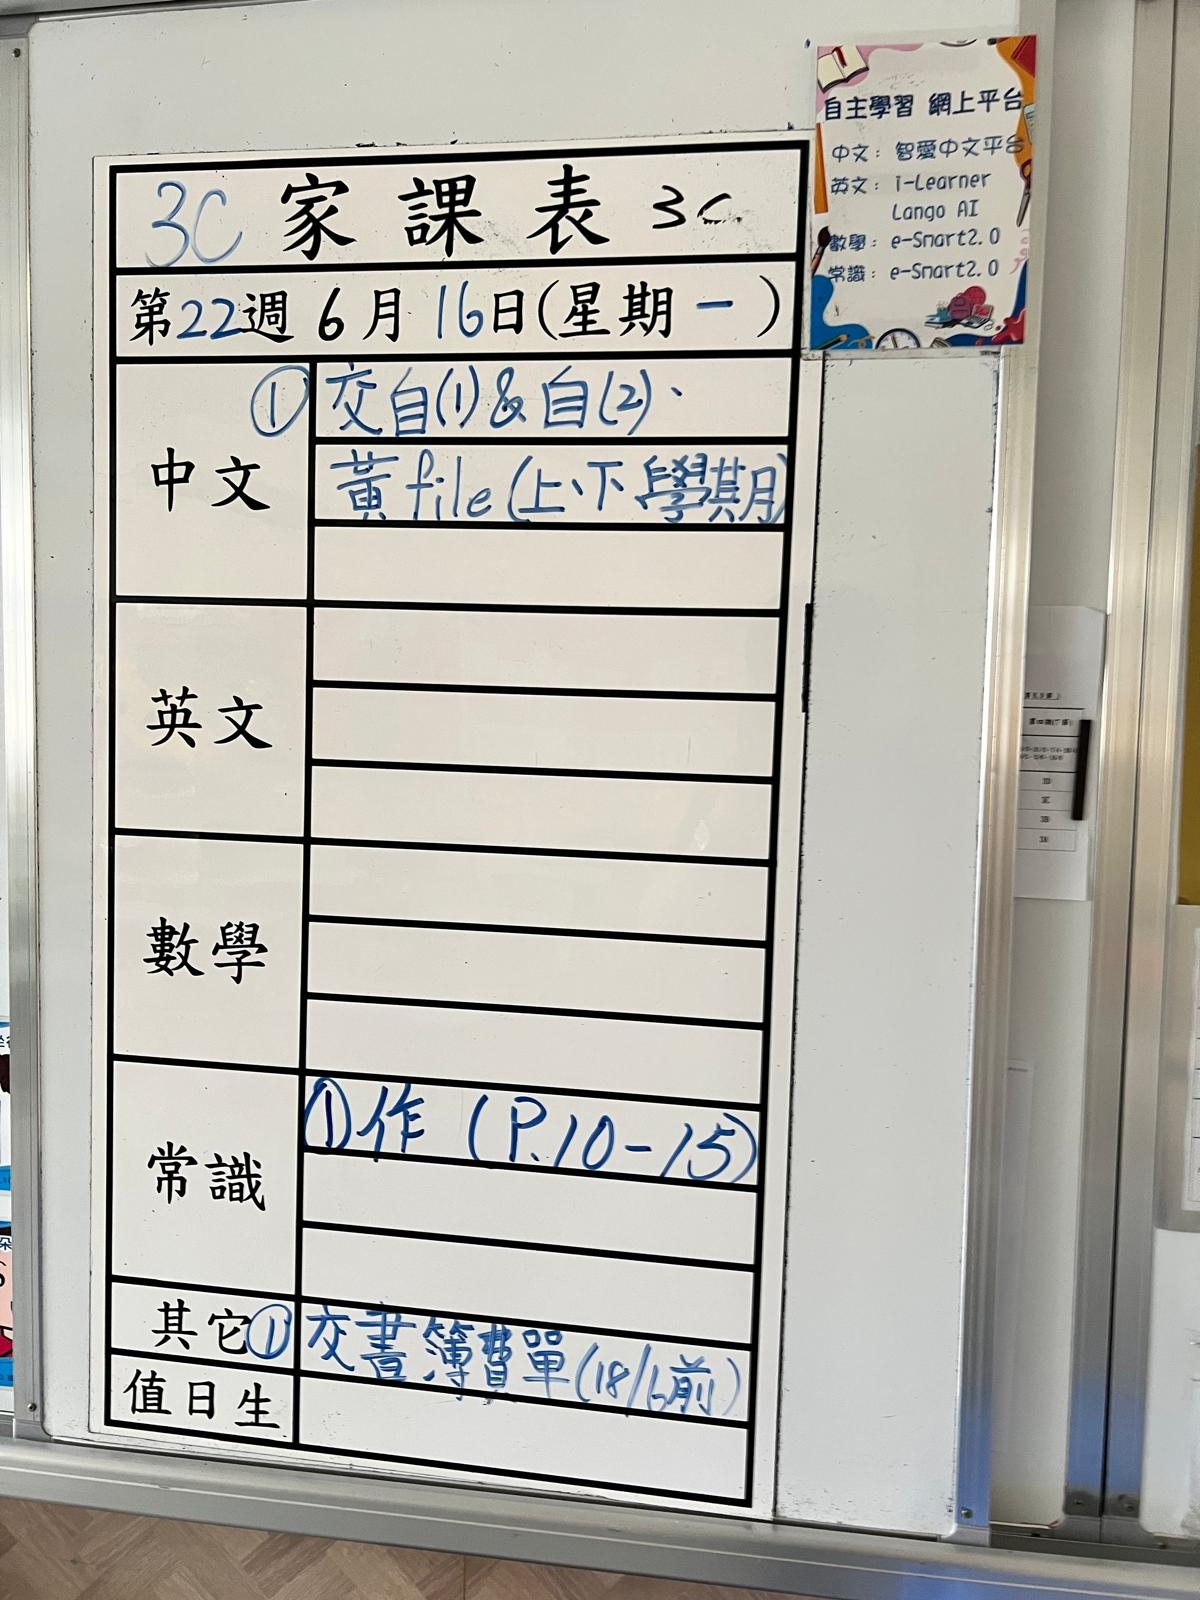 3C 家課表 3C
第22週 6月16日(星期一)
中文
① 交自(1)&自(2)、
黃file(上、下學期)
英文
數學
常識
①作 (P.10-15)
其它
① 交書簿費單(18/6前)
值日生
自主學習 網上平台
中文: 智愛中文平台
英文: i-Learner
Lango AI
數學: e-Smart2.0
常識: e-Smart2.0